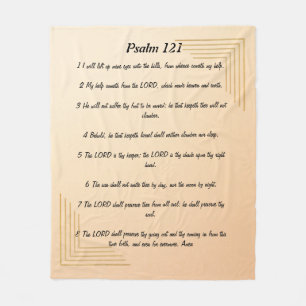 Psalm 121
1 I will lift up mine eyes unto the hills, from whence cometh my help.
2 My help cometh from the LORD, which made heaven and earth.
3 He will not suffer thy foot to be moved: he that keepeth thee will not
slumber.
4 Behold, he that keepeth Israel shall neither slumber nor sleep.
5 The LORD is thy keeper: the LORD is thy shade upon thy right
hand.
6 The sun shall not smite thee by day, nor the moon by night.
7 The LORD shall preserve thee from all evil: he shall preserve thy
soul.
8 The LORD shall preserve thy going out and thy coming in from this
time forth, and even for evermore. Amen